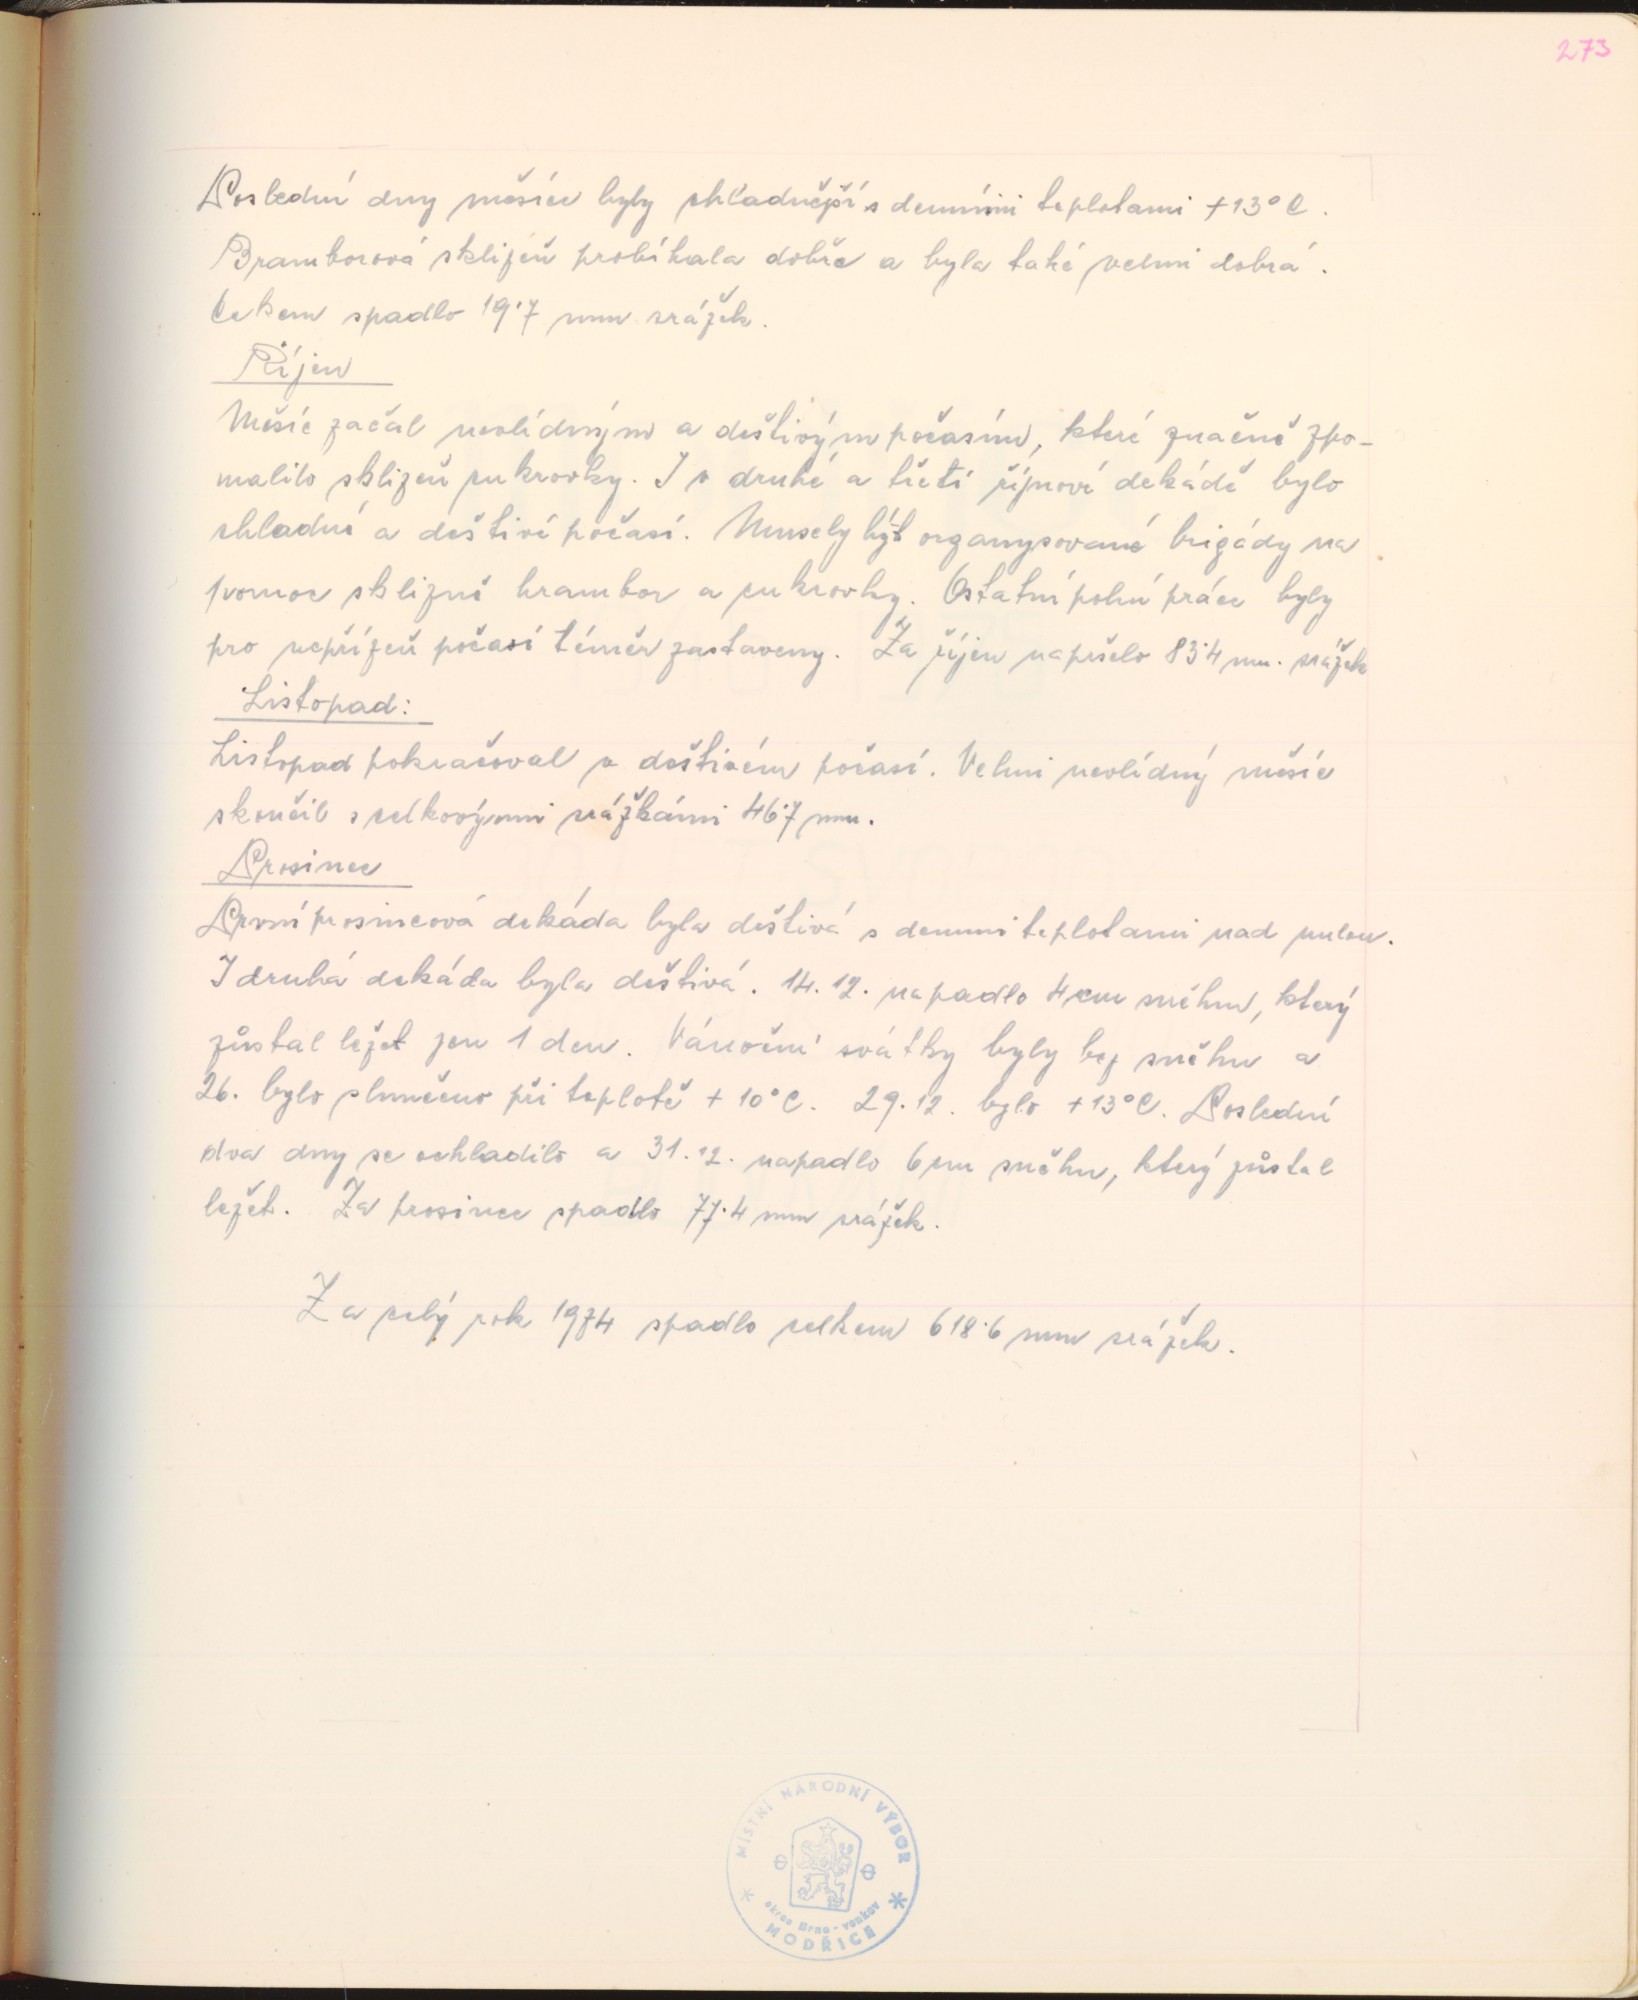 273
Poslední dny měsíce byly chladnější s denními teplotami +13°C.
Bramborová sklizeň probíhala dobře a byla také velmi dobrá.
Celkem spadlo 19·7 mm srážek.
Říjen
Měsíc začal nevlídným a deštivým počasím, které značně zpo-
malilo sklizeň cukrovky. I v druhé a třetí říjnové dekádě bylo
chladné a deštivé počasí. Musely být organysované brigády na
pomoc sklizně brambor a cukrovky. Ostatní polní práce byly
pro nepřízeň počasí téměř zastaveny. Za říjen napršelo 83·4 mm. srážek
Listopad:
Listopad pokračoval v deštivém počasí. Velmi nevlídný měsíc
skončil s celkovými srážkámi 46·7 mm.
Prosinec
První prosincová dekáda byla deštivá s denními teplotami nad nulou.
I druhá dekáda byla deštivá. 14.12. napadlo 4 cm sněhu, který
zůstal ležet jen 1 den. Vánoční svátky byly bez sněhu a
26. bylo slunečno při teplotě + 10°C. 29.12. bylo +13°C. Poslední
dva dny se ochladilo a 31.12. napadlo 6 cm sněhu, který zůstal
ležet. Za prosinec spadlo 77·4 mm srážek.
Za celý rok 1974 spadlo celkem 618·6 mm srážek.
MÍSTNÍ NÁRODNÍ VÝBOR
okres Brno-venkov
MODŘICE